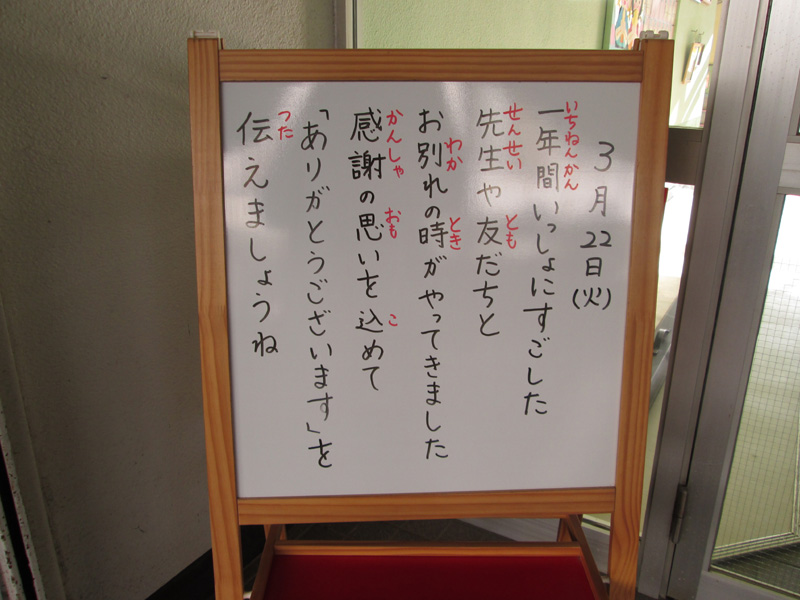 3月22日(火)
一年間いっしょにすごした
いちねんかん
先生や友だちと
せんせい とも
お別れの時がやってきました
わか とき
感謝の思いを込めて
かんしゃ おも こ
「ありがとうございます」を
伝えましょうね
つた